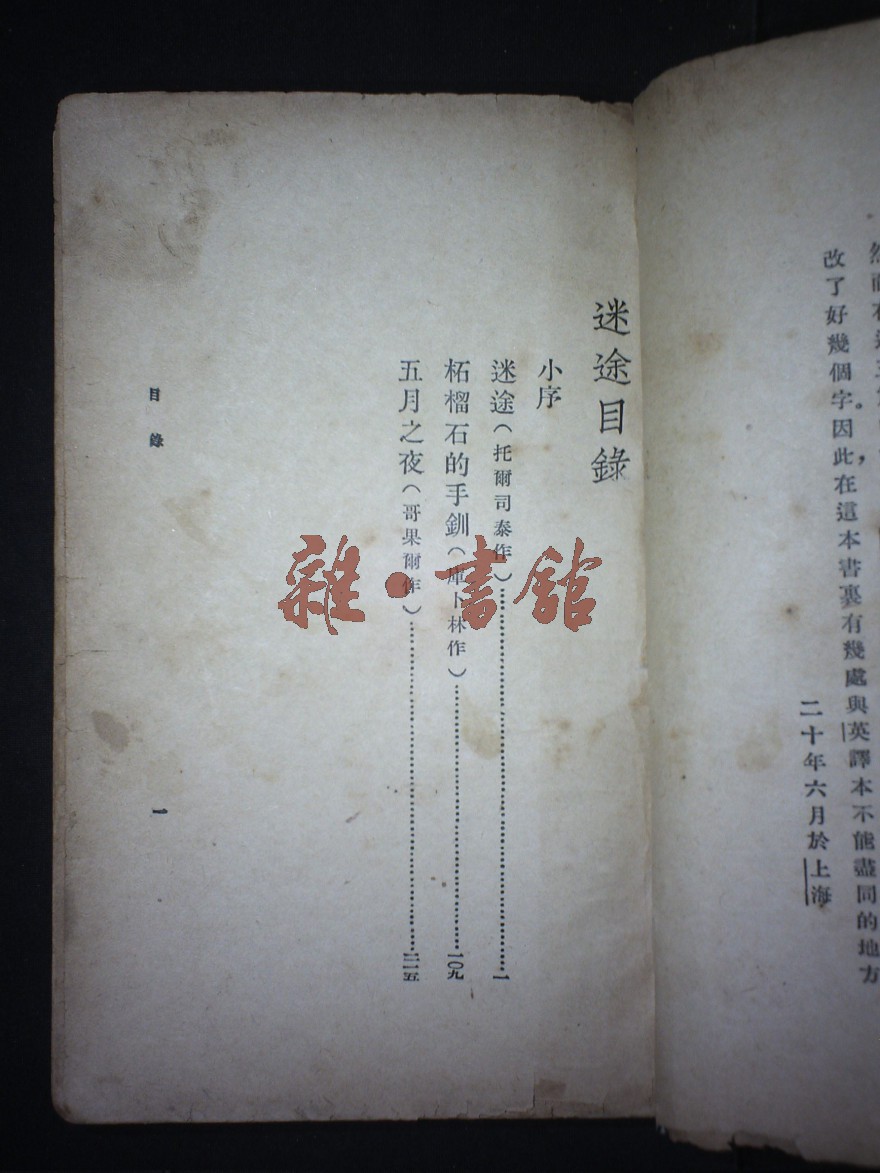 改了好幾個字。因此,在這本書裏有幾處與英譯本不能盡同的地方
二十年六月於上海
迷途目錄
小序
迷途(托爾司泰作)……一
柘榴石的手釧(庫卜林作)……一〇九
五月之夜(哥果爾作)……二一五
目錄
一
雜·書館